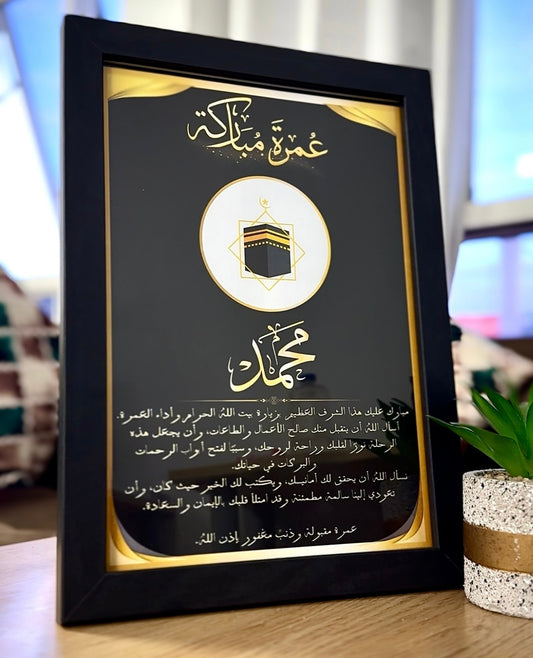 عُمرَة مُبَاركة
محمد
مبارك عليك هذا الشرف العظيم بزيارة بيت الله الحرام وأداء العمرة.
أسأل الله أن يتقبل منك صالح الأعمال والطاعات، وأن يجعل هذه
الرحلة نورًا لقلبك وراحة لروحك، وسببًا لفتح أبواب الرحمات
والبركات في حياتك.
نسأل الله أن يحقق لك أمانيك، ويكتب لك الخير حيث كان، وأن
تعودي إلينا سالمة مطمئنة وقد امتلأ قلبك بالإيمان والسعادة.
عمرة مقبولة وذنبٌ مغفور بإذن الله.